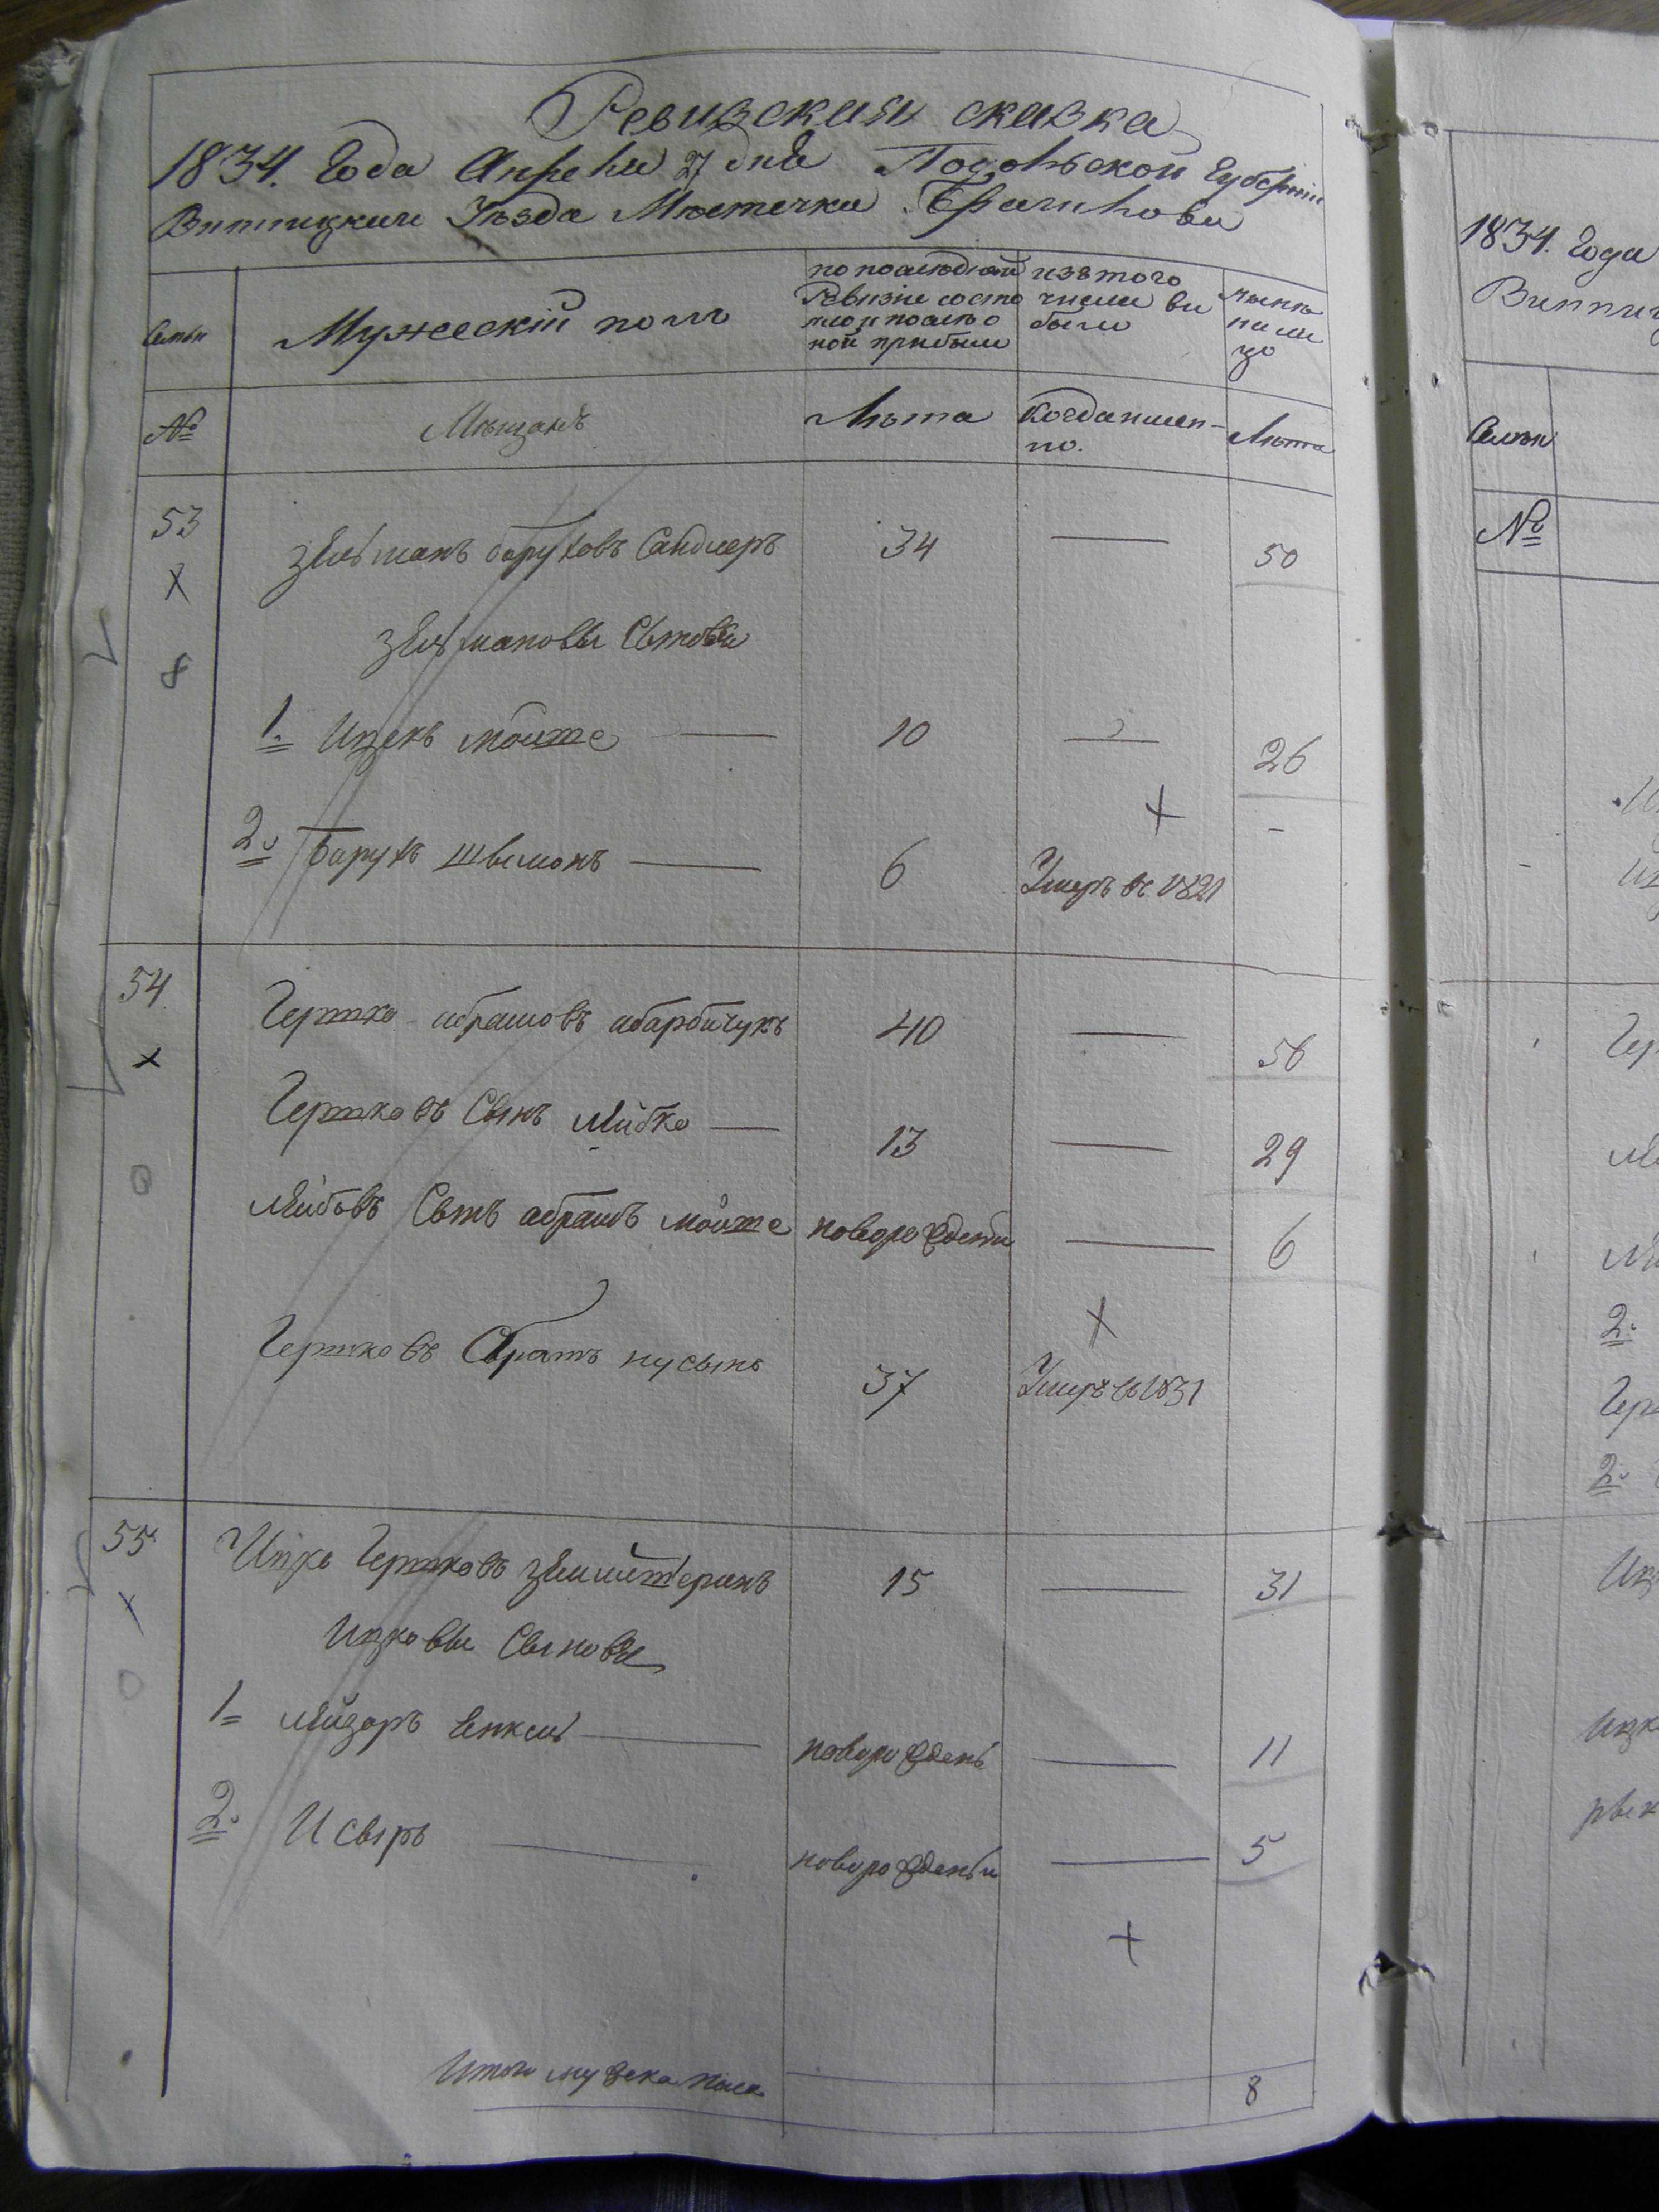 Ревизская сказка
1834. Года Апреля 27 дня Подольской Губерніи
Винницкаго Уѣзда Мѣстечка Браилова
Семьи
Мужескій полъ
по последней
Ревизіи состо
яло и после о
ной прибыли
изъ того
числа вы
было
ныне
на ли
цо
№
Мѣщанъ
Лѣта
Когда имен-
но.
Лѣта
53
Зельманъ Боруховъ Сандлеръ
34
50
Х
Зельмановы Сыновья
8
1. Ицекъ мойше
10
26
2. Барухъ
6
Умеръ въ 1821
54
Гершко абрамовъ
40
56
х
Гершковъ Сынъ Лейбко
13
29
Лейбовъ Сынъ абрамъ мойше
новорожденъ
6
Гершковъ братъ нусынъ
37
Умеръ въ 1831
55
Ицко Гершковъ
15
31
х
Ицковы Сыновья
1 Лейзоръ
новорожденъ
11
2. Исеръ
новорожденъ
5
Итого мужеска пола
8
1834. Года
Семьи
№
2.
2.